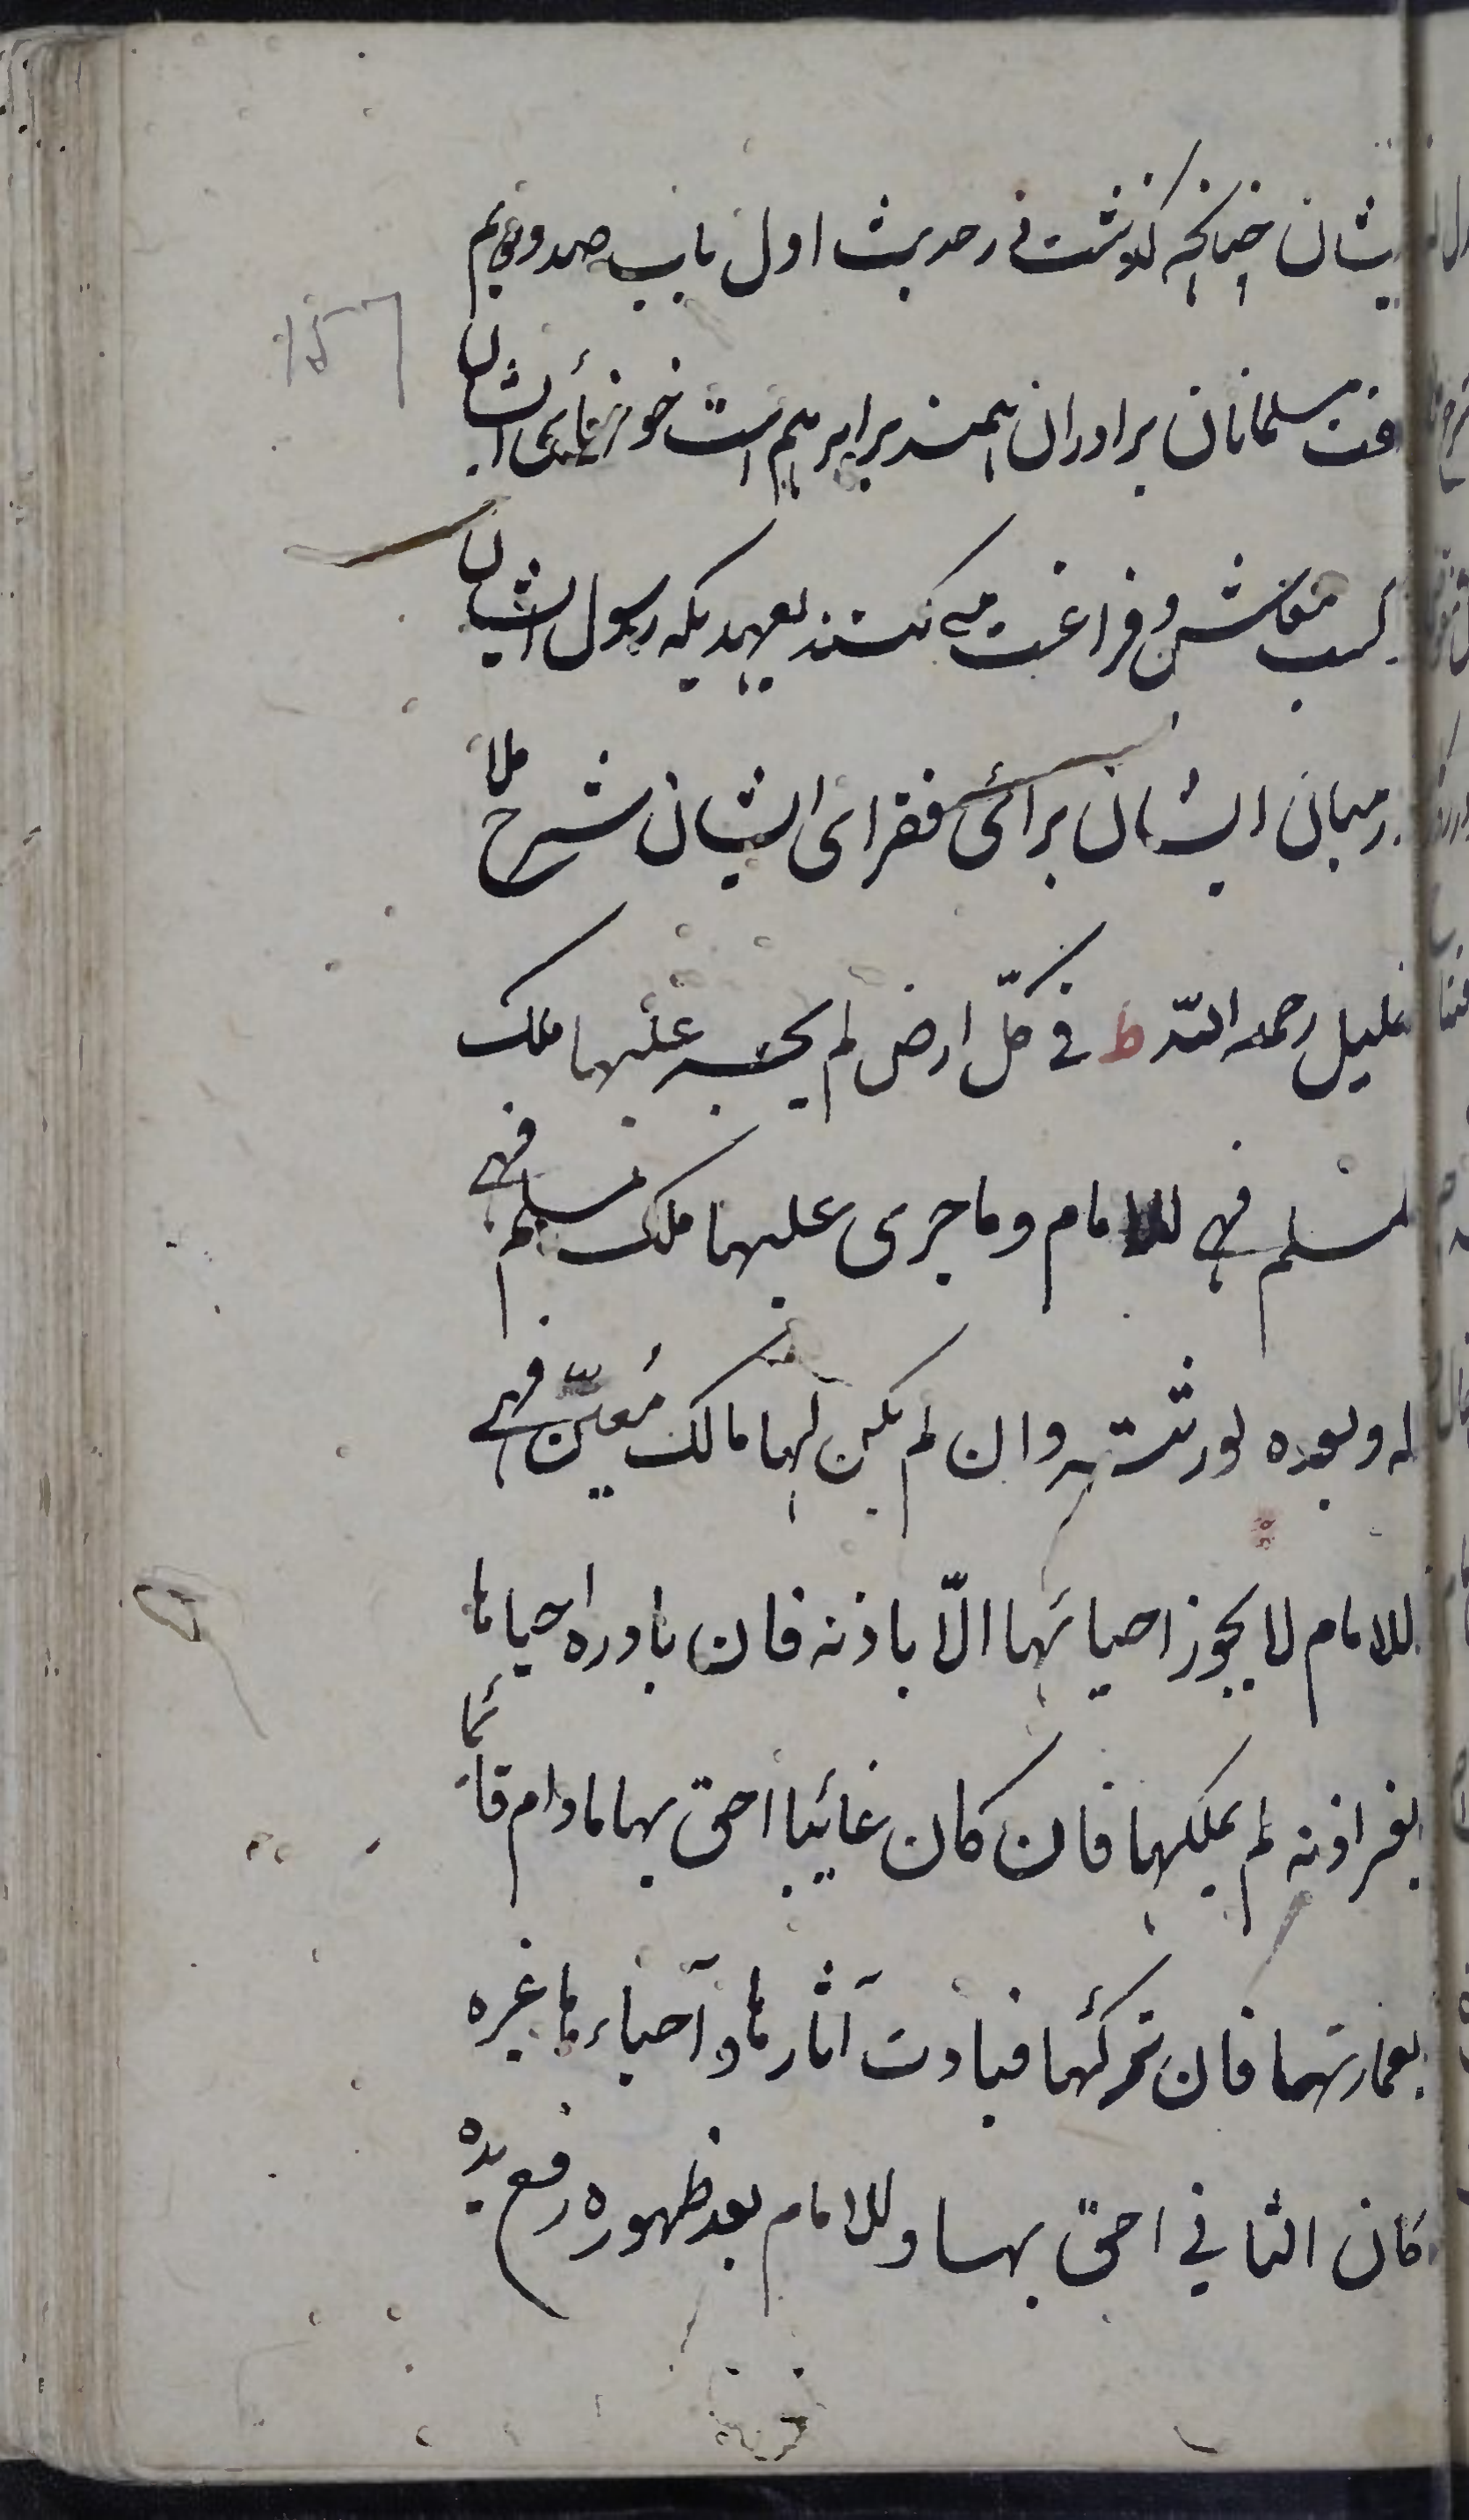 یشان چنانچه گذشت در حدیث اول باب صد و
گفت مسلمانان برادران همند برابر هم است خونهای ایشان
کسب معاش و فراغت می کنند بعهدیکه رسول ایشان
در میان ایشان برائی فقرای ایشان شرح ملا
خلیل رحمه الله ط فی کلّ ارض لم یجر علیها ملک
لمسلم فهی للامام وما جری علیها ملک مسلم فهی
له وبعده لورثته وان لم یکن لها مالک مُعیّن فهی
للامام لا یجوز احیائها الّا باذنه فان بادر احیاها
بغیر اذنه لم یملکها فان کان غائبا احق بها مادام قائما
بعمارتها فان ترکها فبادت آثارها و آحیاءها غیره
کان الثانی احقّ بها وللامام بعد ظهوره رفع یده
157